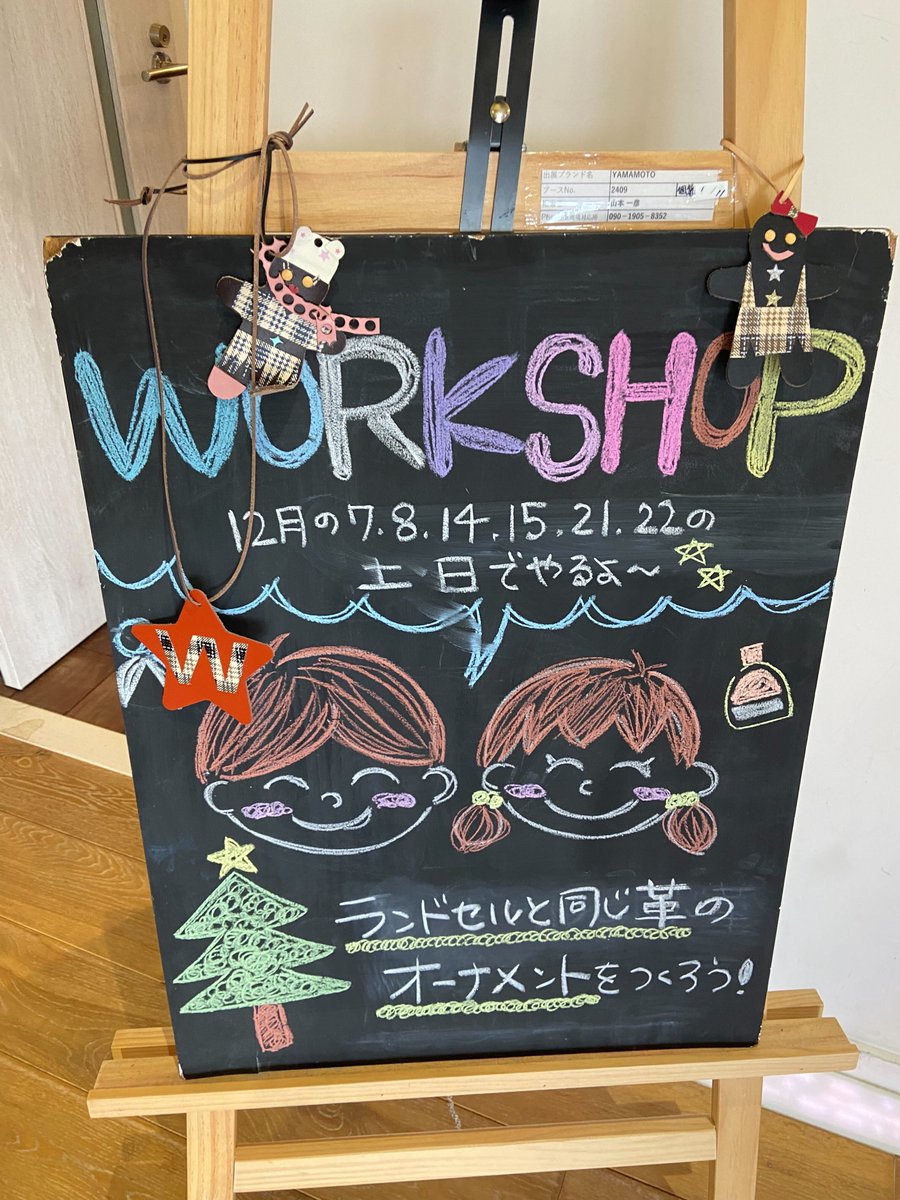 出展ブランド名 YAMAMOTO
ブースNo. 2409
山本 一彦
090-1905-8352
WORKSHOP
12月の7.8.14.15.21.22の
土・日でやるよ〜
W
ランドセルと同じ革の
オーナメントをつくろう!